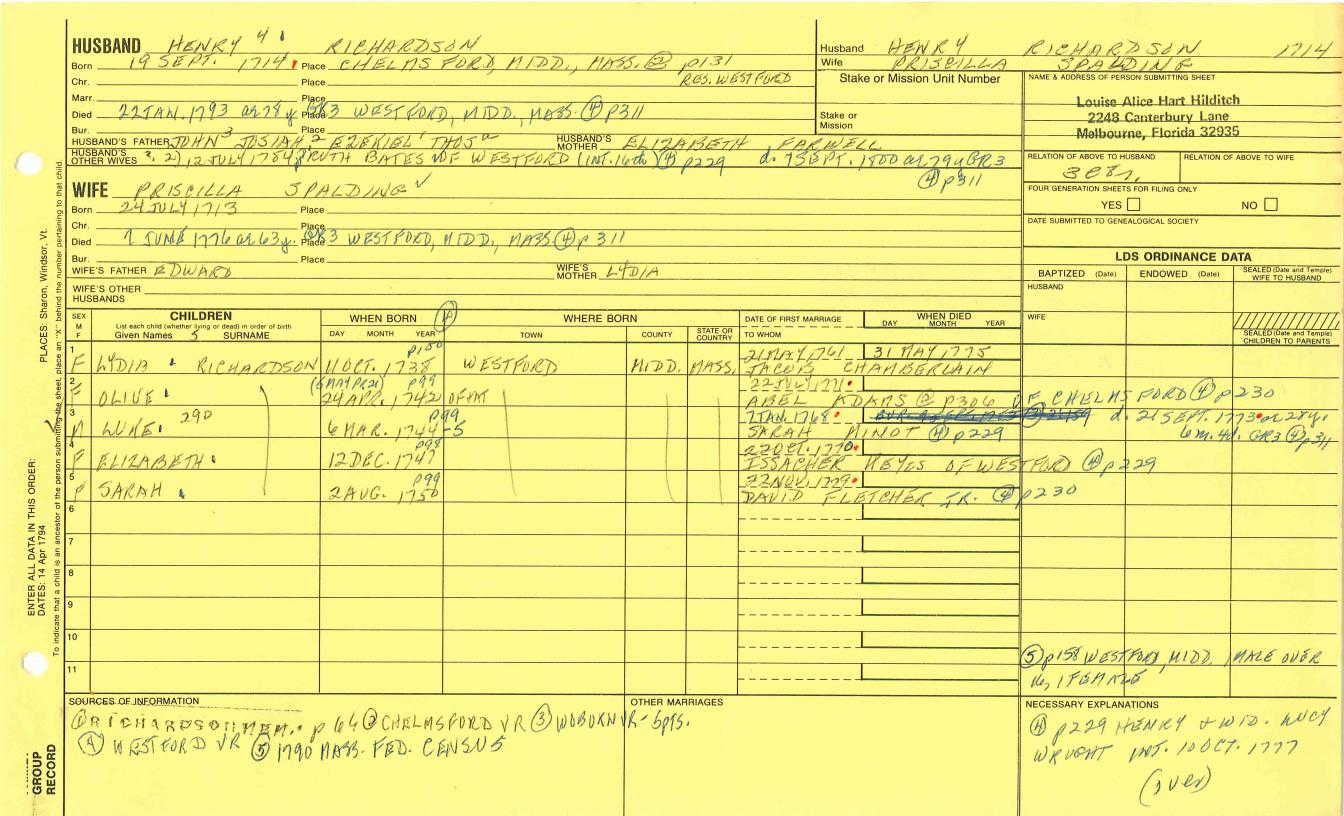 HUSBAND HENRY 4 RICHARDSON
Born 19 SEPT. 1714 Place CHELMSFORD, MIDD., MASS. ② p131
Chr. Place RES. WESTFORD
Marr. Place
Died 22 JAN. 1793 ae 78 y GR3 Place WESTFORD, MIDD, MASS. ④ p311
Bur. Place
HUSBAND'S FATHER JOHN 3 JOSIAH, 2 EZEKIEL 1 THOS HUSBAND'S MOTHER ELIZABETH FARWELL
HUSBAND'S OTHER WIVES 2) 12 JULY 1784 RUTH BATES OF WESTFORD (INT. 16th) ④ p229 d. 7 SEPT. 1800 ae 79 y GR3
④ p311
WIFE PRISCILLA SPALDING ✓
Born 24 JULY 1713 Place
Chr. Place
Died 7 JUNE 1776 ae 63 y. GR3 Place WESTFORD, MIDD., MASS ④ p 311
Bur. Place
WIFE'S FATHER EDWARD WIFE'S MOTHER LYDIA
WIFE'S OTHER HUSBANDS
Husband HENRY RICHARDSON 1714
Wife PRISCILLA SPALDING
Stake or Mission Unit Number
Stake or Mission
NAME & ADDRESS OF PERSON SUBMITTING SHEET
Louise Alice Hart Hilditch
2248 Canterbury Lane
Melbourne, Florida 32935
RELATION OF ABOVE TO HUSBAND RELATION OF ABOVE TO WIFE
FOUR GENERATION SHEETS FOR FILING ONLY
YES NO
DATE SUBMITTED TO GENEALOGICAL SOCIETY
LDS ORDINANCE DATA
BAPTIZED (Date) ENDOWED (Date) SEALED (Date and Temple) WIFE TO HUSBAND
HUSBAND
WIFE
SEALED (Date and Temple) CHILDREN TO PARENTS
SEX M F CHILDREN WHEN BORN ④ WHERE BORN DATE OF FIRST MARRIAGE WHEN DIED
List each child (whether living or dead) in order of birth
Given Names 5 SURNAME DAY MONTH YEAR TOWN COUNTY STATE OR COUNTRY TO WHOM DAY MONTH YEAR
p150
1 F LYDIA RICHARDSON 11 OCT. 1738 WESTFORD MIDD. MASS. 21 MAY, 1761 31 MAY, 1775
JACOB CHAMBERLAIN
2 F OLIVE (6 MAY PR21) p99 24 APR. 1742 22 JULY 1771
ABEL ADAMS ② p306 OF CHELMSFORD ④ p230
3 M LUKE 290 p99 6 MAR. 1744-5 7 JAN. 1768 d. 21 SEPT. 1773 ae 28 y.
SARAH MINOT ④ p229 6 m. 4 d. GR3 ④ p311
4 F ELIZABETH p99 12 DEC. 1747 22 OCT. 1770
ISSACHER KEYES OF WESTFORD ④ p229
5 F SARAH p99 2 AUG. 1750 22 NOV. 1779
DAVID FLETCHER JR. ④ p230
6
7
8
9
10
11
⑤ p158 WESTFORD, MIDD. 1 MALE OVER
16, 1 FEMALE
SOURCES OF INFORMATION
① RICHARDSON MEM. p 64 ② CHELMSFORD VR ③ WOBURN VR - 5 pts.
④ WESTFORD VR ⑤ 1790 MASS. FED. CENSUS
OTHER MARRIAGES
NECESSARY EXPLANATIONS
④ p229 HENRY & WID. LUCY
WRIGHT INT. 10 OCT. 1777
(over)
PLACES: Sharon, Windsor, Vt.
ENTER ALL DATA IN THIS ORDER:
DATES: 14 Apr 1794
To indicate that a child is an ancestor of the person submitting the sheet, place an "X" behind the number pertaining to that child
GROUP
RECORD